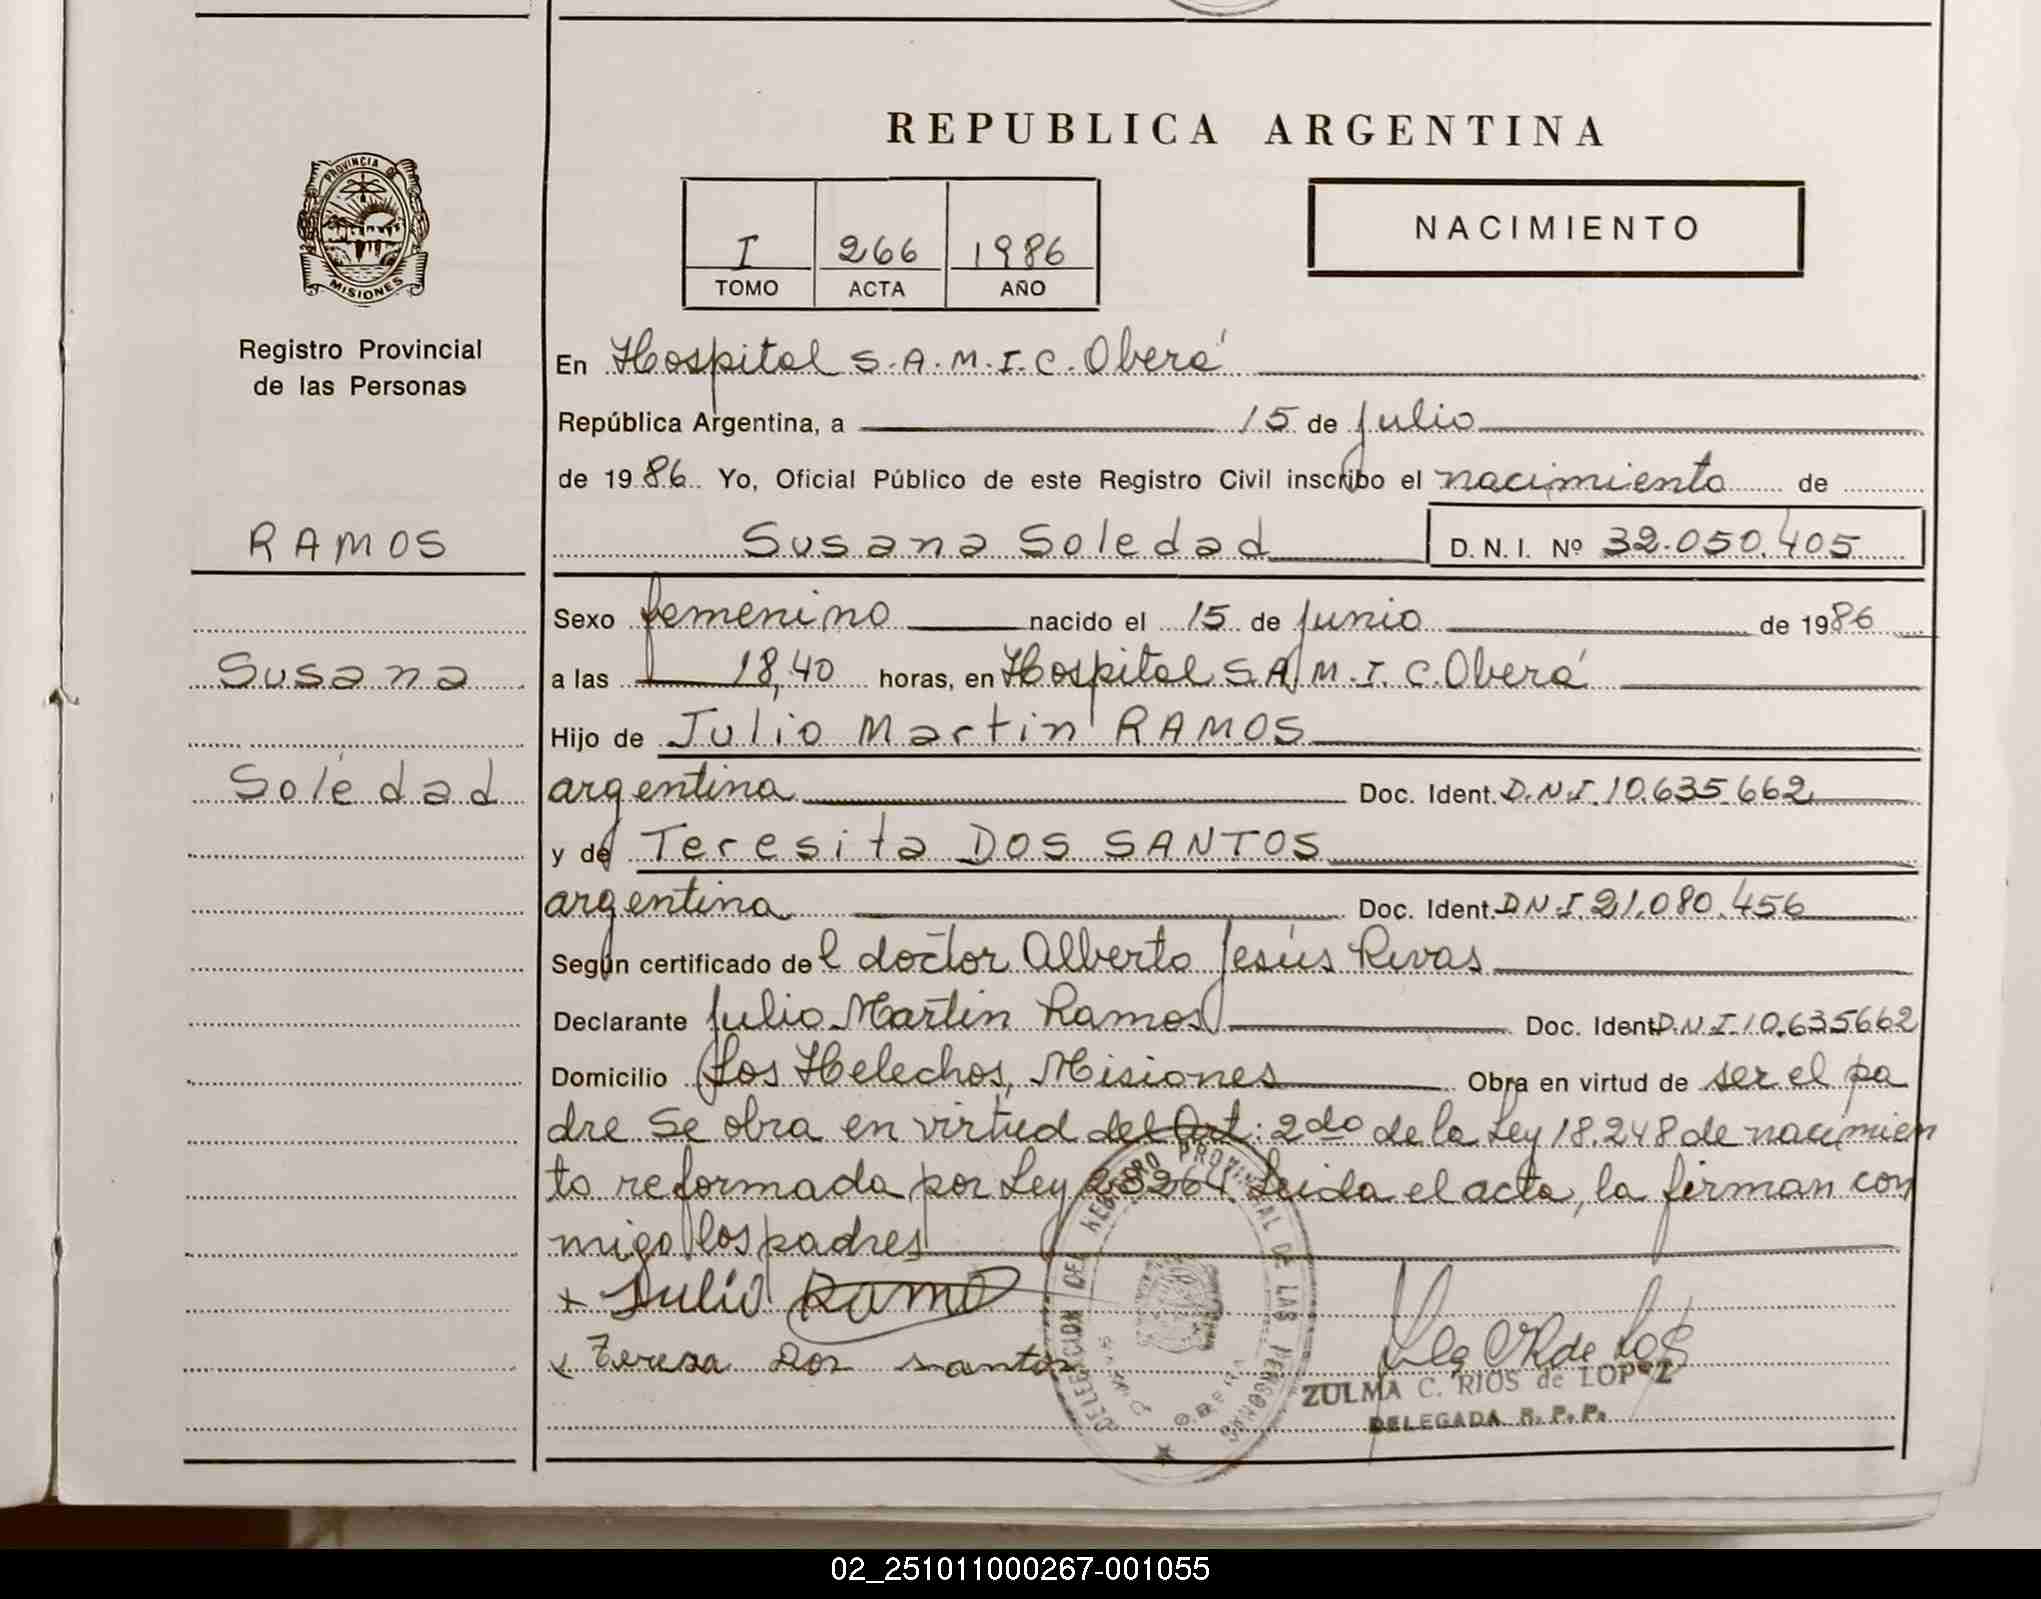 REPUBLICA ARGENTINA
PROVINCIA DE
MISIONES
NACIMIENTO
I 266 1986
TOMO ACTA AÑO
Registro Provincial
de las Personas
En Hospital S.A.M.I.C. Oberá
República Argentina, a 15 de julio
de 1986. Yo, Oficial Público de este Registro Civil inscribo el nacimiento de
RAMOS
Susana Soledad D.N.I. Nº 32.050.405
Sexo femenino nacido el 15 de junio de 1986
Susana
a las 18,40 horas, en Hospital S.A.M.I.C. Oberá
Hijo de Julio Martin RAMOS
Soledad
argentina Doc. Ident. D.N.I. 10.635.662
y de Teresita DOS SANTOS
argentina Doc. Ident. D.N.I. 21.080.456
Según certificado del doctor Alberto Jesús Rivas
Declarante Julio Martin Ramos Doc. Ident. D.N.I. 10.635662
Domicilio Los Helechos, Misiones Obra en virtud de ser el pa
dre Se obra en virtud del Art. 2do de la Ley 18.248 de nacimien
to reformada por Ley 23264. Leida el acta, la firman con
migo los padres
x Julio Ramo
x Teresa Dos santos
DELEGACION DEL REGISTRO PROVINCIAL DE LAS PERSONAS
OBERA
ZULMA C. RIOS de LOPEZ
DELEGADA R. P. P.
02_251011000267-001055